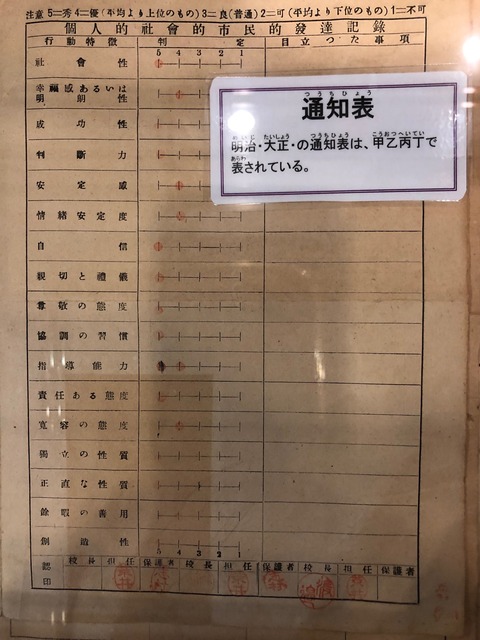 注意 5=秀 4=優(平均より上位のもの) 3=良(普通) 2=可(平均より下位のもの) 1=不可
個人的社會的市民的發達記錄
行動特徴 判定 目立つた事項
5 4 3 2 1
社會性
幸福感あるいは
明朗性
成功性
判斷力
安定感
情緒安定度
自信
親切と禮儀
尊敬の態度
協調の習慣
指導能力
責任ある態度
寬容の態度
獨立の性質
正直な性質
餘暇の善用
創造性
5 4 3 2 1
認印 校長 担任 保護者 校長 担任 保護者 校長 担任 保護者
つうちひょう
通知表
めいじ たいしょう つうちひょう こうおつへいてい
明治・大正・の通知表は、甲乙丙丁で
あらわ
表されている。